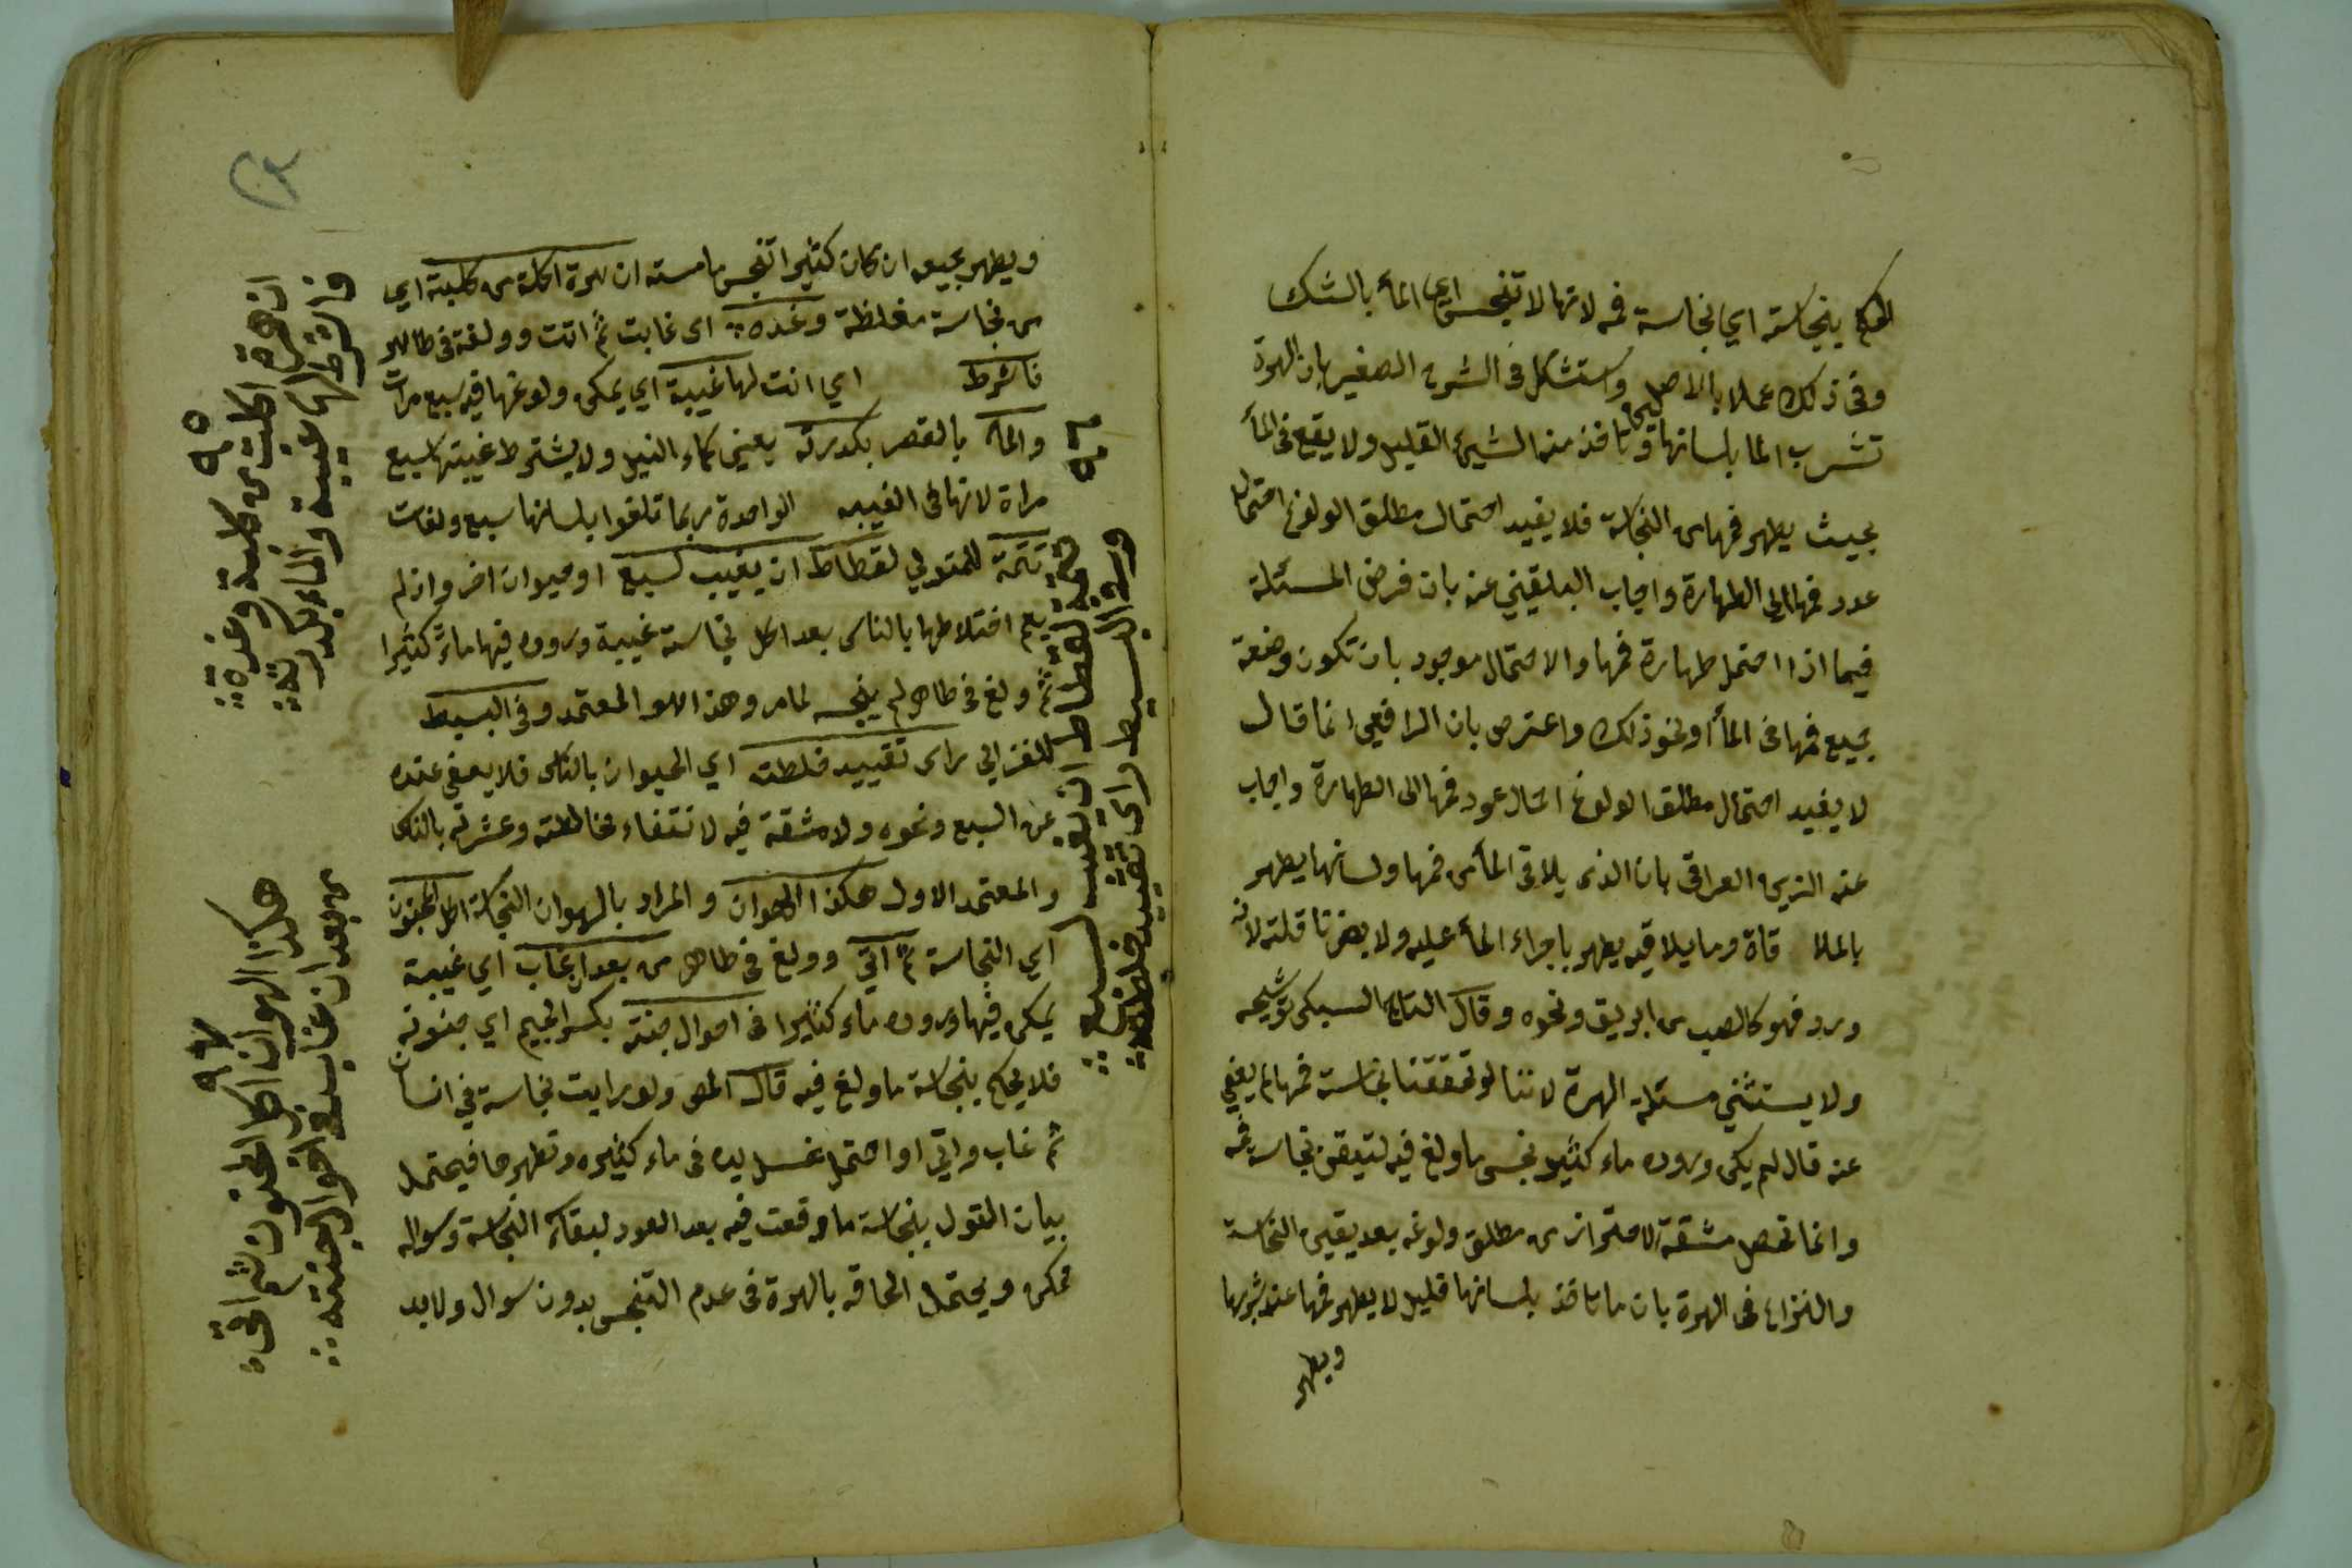 الحكم بنجاسته اي نجاسة فمه لانها لا تنجس اي الماء بالشك
وفى ذلك عملا بالاصل واستشكل فى الشرح الصغير بان الهرة
تشرب الما بلسانها وتاخذ منه الشيء القليل ولا يقع فى الماء
بحيث يطهر فمها من النجاسة فلا يفيد احتمال مطلق الولوغ احتمال
عود فمها الى الطهارة واجاب البلقيني عنه بان فرض المسئلة
فيما اذا احتمل طهارة فمها والاحتمال موجود بان تكون وضعت
جميع فمها فى الماء او نحو ذلك واعترض بان الرافعي انما قال
لا يفيد احتمال مطلق الولوغ احتمال عود فمها الى الطهارة واجاب
عنه الزين العراقى بان الذى يلاقى الماء من فمها ولسانها يطهر
بالملا قاة وما يلاقيه يطهر باجراء الماء عليه ولا يضرنا قلته لانه
ورد فهو كالصب من ابريق ونحوه وقال التاج السبكى توشيحه
ولا يستثنى مسئلة الهرة لاننا لو تحققنا نجاسة فمها لم يعفي
عنه قال لم يكن وروده ماء كثير نجس ما ولغ فيه لتيقن نجاسة فمه
وانما تحصل مشقة الاحتراز من مطلق ولوغه بعد يقين النجاسة
والنزاع فى الهرة بان ما تاخذ بلسانها قليل لا يطهر فمها عند شربها
ويطهر
ويطهر جميعه ان كان كثيرا تنجس ما مسته ان هرة اكلت من كلبة اي
من نجاسة مغلظة وغدة اى غابت ثم اتت وولغة فى طاهر
فاشرط اي انت لها غيبة اي يمكن ولوغها فيه سبع مرات
والماء بالقصر بكدرته يعني كماء النيل ولا يشترط غيبتها سبع
مراة لانها فى الغيبه الواحدة ربما تلغوا بلسانها سبع ولغات
تتمة للمتولي لقطاط ان يغيب لسبع او حيوان اخر وان لم
يعم اختلاطها بالناس بعد اكل نجاسة غيبة وروده فيها ماء كثيرا
ثم ولغ فى طاهر لم ينجسه لما مر وهذا هو المعتمد وفى البسيط
للغزالي راى تقييد خلطته اي الحيوان بالناس فلا يعفى عنده
عن السبع ونحوه ولا مشقة فيه لانتفاء مخالطته وعشرته بالناس
والمعتمد الاول هكذا الهوان والمراد بالهوان النجاسة اكل المجنون
اي النجاسة ثم اتى وولغ فى طاهر من بعد ان غاب اي غيبة
يمكن فيها وروده ماء كثيرا فى احوال جنته بكسر الجيم اي جنونه
فلا يحكم بنجاسة ما ولغ فيه قال المص ولو رايت نجاسة في انسان
ثم غاب واتي او احتمل غسل يده فى ماء كثيره وتطهرها فيحتمل
بيان القول بنجاسة ما وقعت فيه بعد العود لبقاء النجاسة وسواله
ممكن ويحتمل الحاقه بالهرة فى عدم التنجس بدون سوال ولابد
٩٥
ان هرة اكلت من كلبة وغدة
فاشرط لها غيبة والماء بكدرته
٩٦
تتمة لقطاط ان يغيب لسبع
وسه البسيط راى تقييد خلطته
٩٧
هكذا الهوان اكل المجنون ثم اتى
من بعد ان غاب بعد احوال جنته